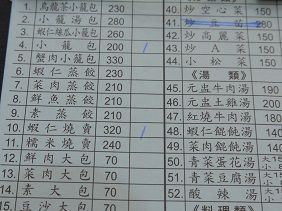 1. 烏龍茶小龍包 230
2. 小龍湯包 280
3. 蝦仁絲瓜小籠包
4. 小龍包 200
5. 蟹肉小龍包
6. 蝦仁蒸餃 210
7. 菜肉蒸餃 210
8. 鮮魚蒸餃 210
9. 素蒸餃 210
10. 蝦仁燒賣 320
11. 糯米燒賣 240
12. 鮮肉大包 70
13. 菜肉大包 70
14. 素大包 70
15. 豆沙大包
40. 炒空心菜 150
41. 炒豆苗 280
42. 炒高麗菜 150
43. 炒A菜 150
44. 小松菜 150
《湯類》
45. 元盅牛肉湯 190
46. 元盅土雞湯 200
47. 紅燒牛肉湯 180
48. 蝦仁餛飩湯
49. 菜肉餛飩湯
50. 青菜蛋花湯 大1
51. 青菜豆腐湯 大1
52. 酸辣湯
《料理類》